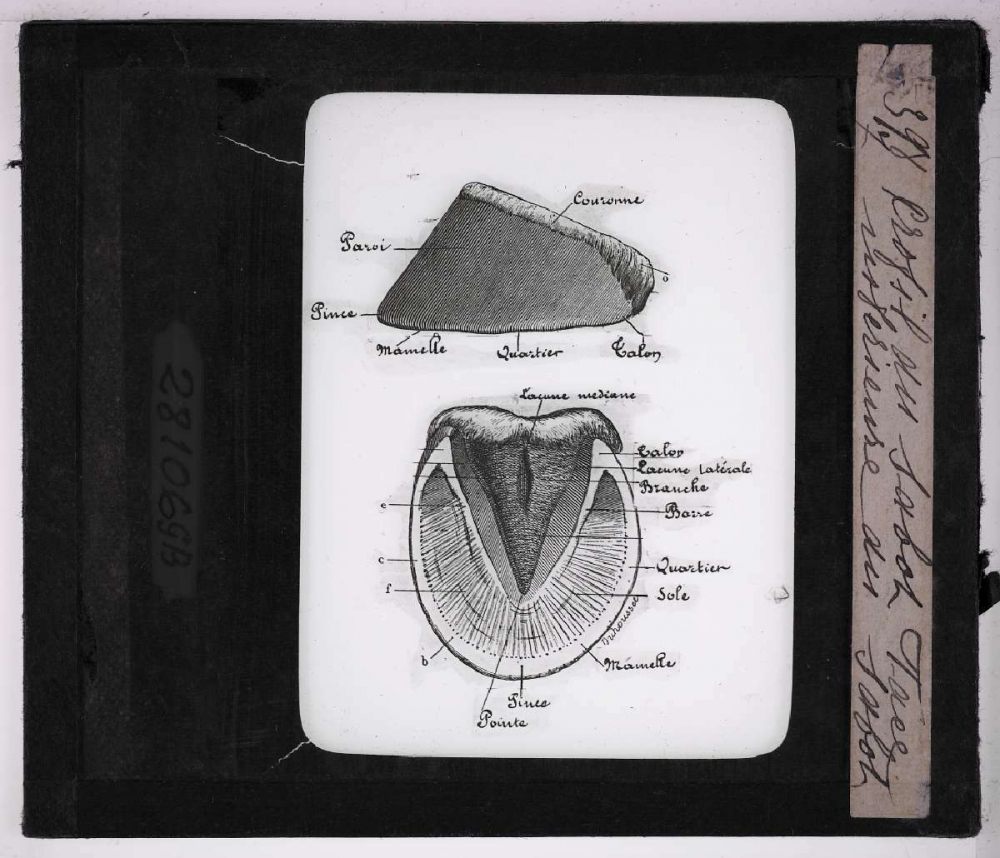 Couronne
Paroi
o
Pince
Mamelle
Quartier
Talon
Lacune mediane
Talon
Lacune Latérale
Branche
e
Barre
c
Quartier
f
Sole
Duhousset
b
Mamelle
Pince
Pointe
Profil du Sabot Face
inferieure du Sabot
281069B